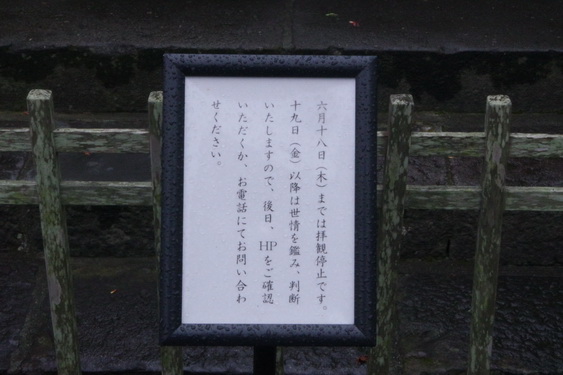 六月十八日（木）までは拝観停止です。
十九日（金）以降は世情を鑑み、判断
いたしますので、後日、HPをご確認
いただくか、お電話にてお問い合わ
せください。